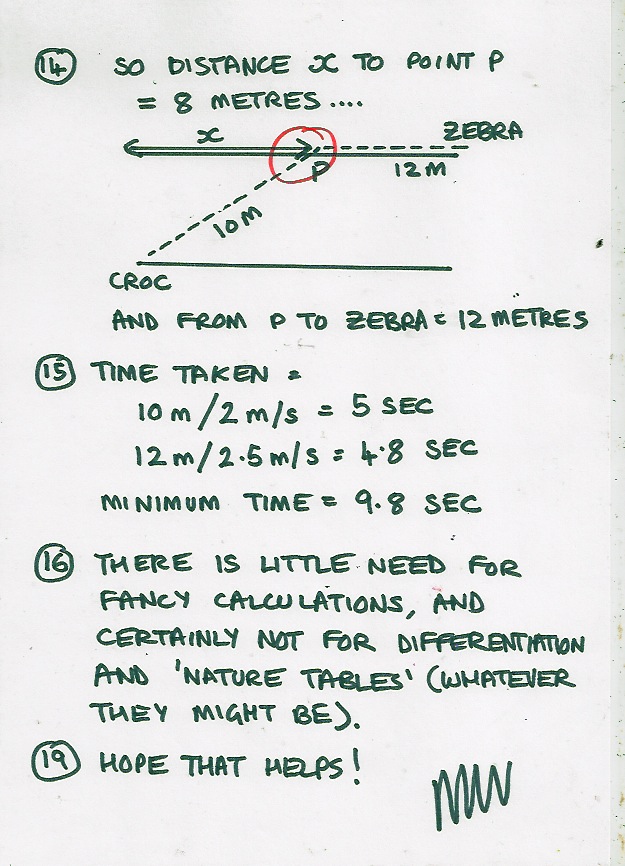 14 SO DISTANCE x TO POINT P
= 8 METRES....
x
ZEBRA
P
12M
10M
CROC
AND FROM P TO ZEBRA = 12 METRES
15 TIME TAKEN =
10m/2m/s = 5 SEC
12m/2.5m/s = 4.8 SEC
MINIMUM TIME = 9.8 SEC
16 THERE IS LITTLE NEED FOR
FANCY CALCULATIONS, AND
CERTAINLY NOT FOR DIFFERENTIATION
AND 'NATURE TABLES' (WHATEVER
THEY MIGHT BE).
19 HOPE THAT HELPS!